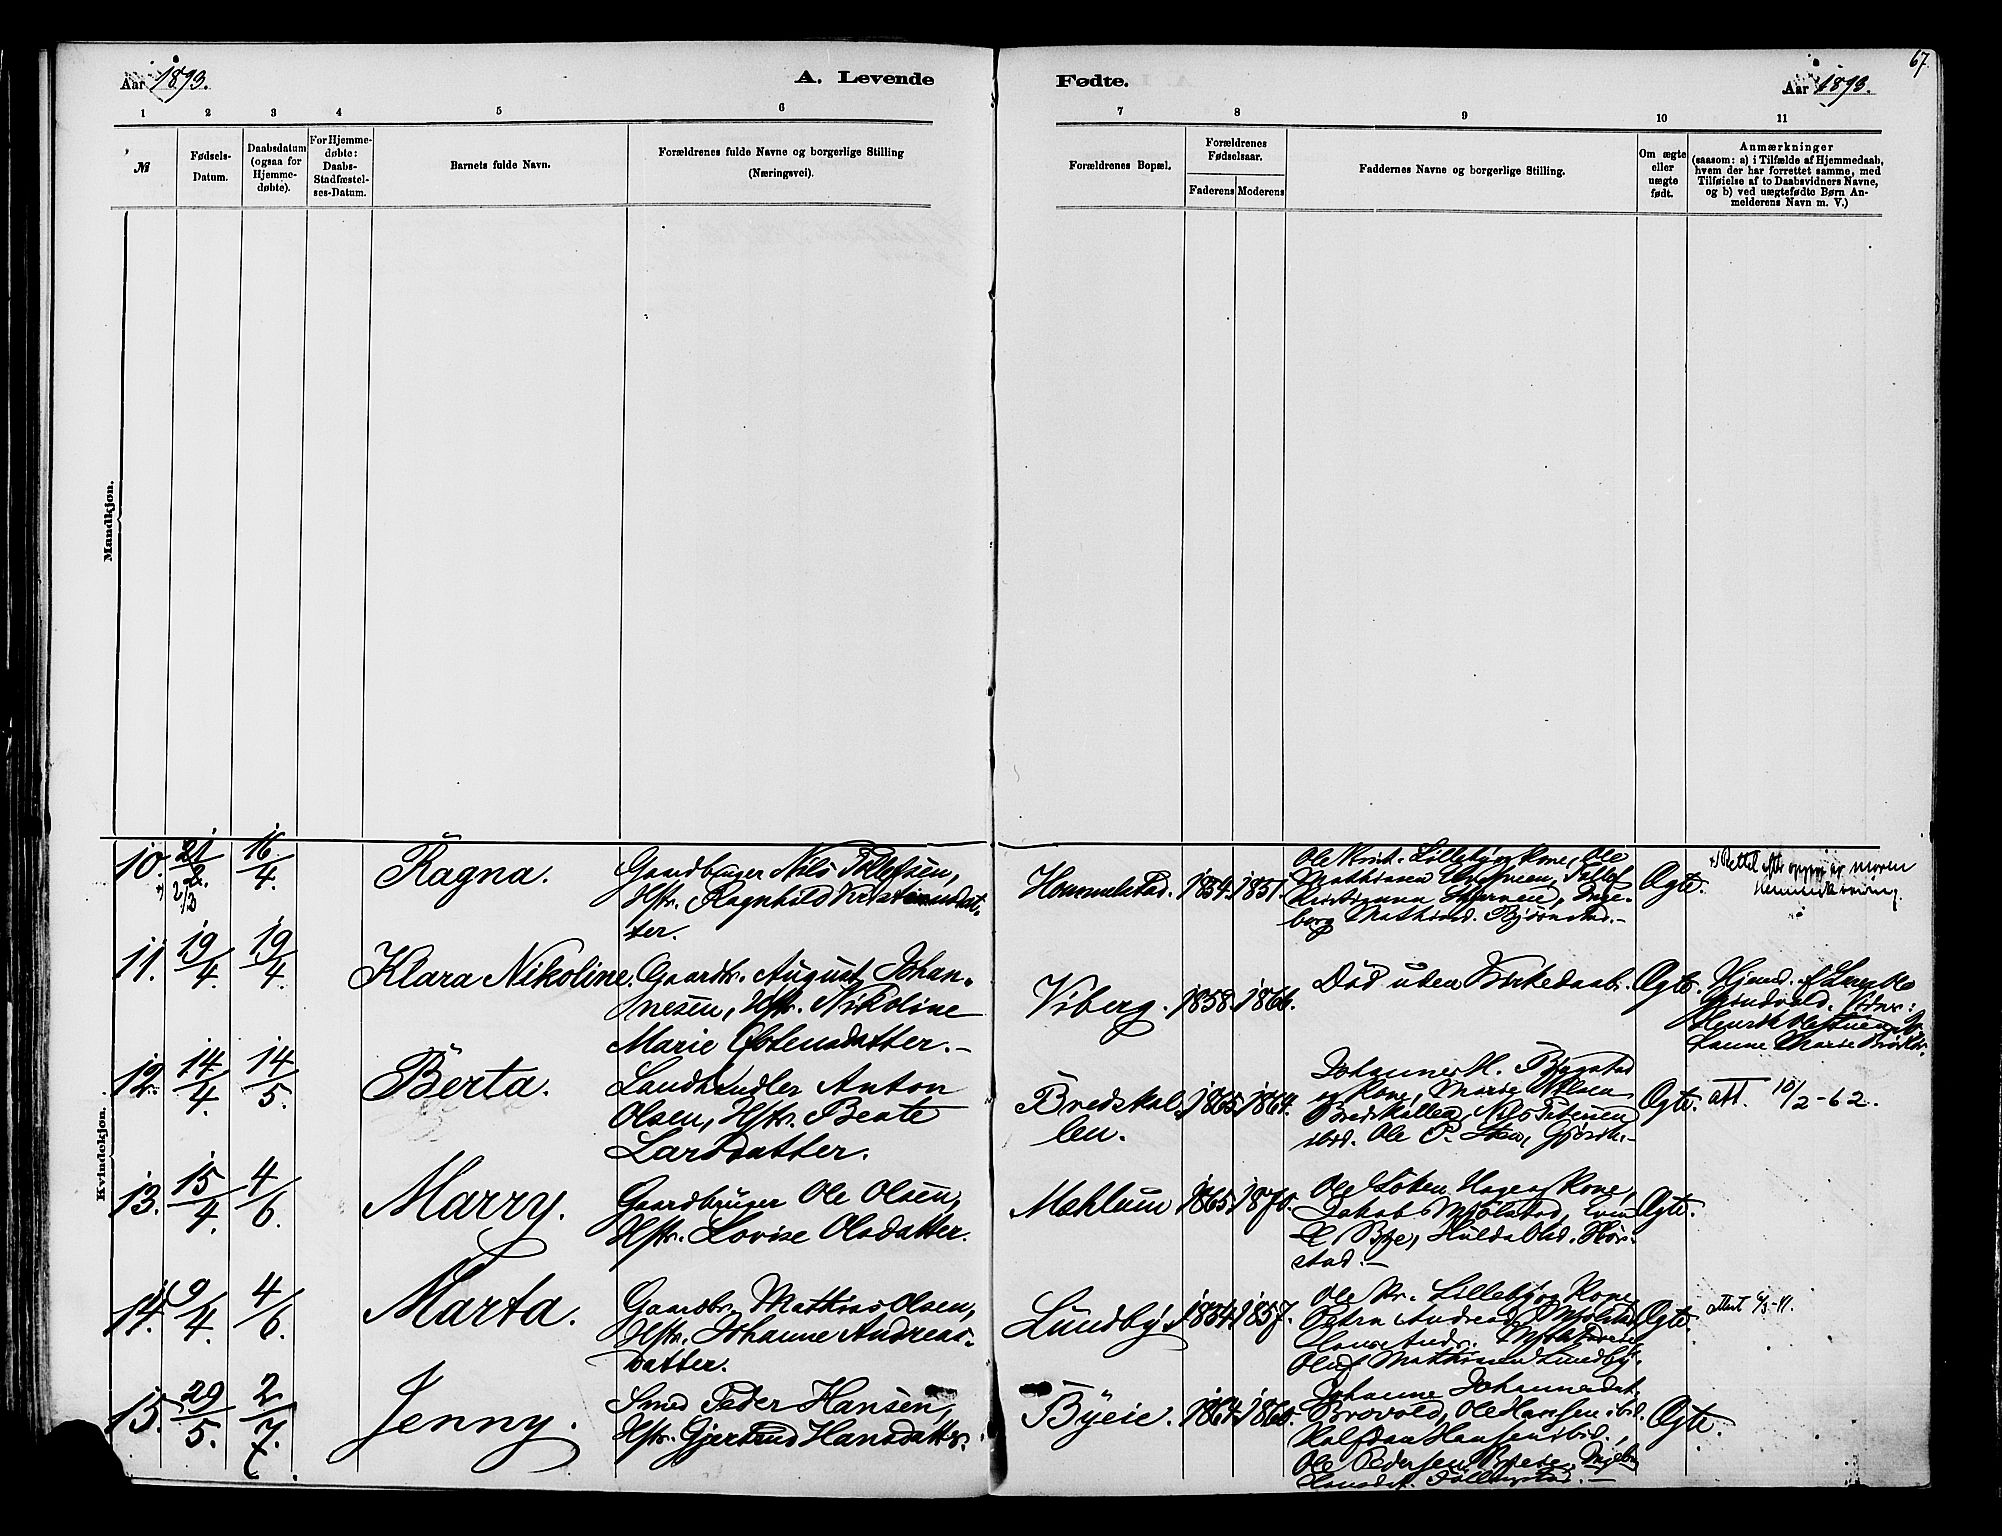 67
Aar 1893.
A. Levende
Fødte.
Aar 1893.
1 2 3 4 5 6 7 8 9 10 11
№
Fødsels-
Datum.
Daabsdatum
(ogsaa for
Hjemme-
døbte).
For Hjemme-
døbte:
Daabs-
Stadfæstel-
ses-Datum.
Barnets fulde Navn.
Forældrenes fulde Navne og borgerlige Stilling
(Næringsvei).
Forældrenes Bopæl.
Forældrenes
Fødselsaar.
Faderens
Moderens
Faddernes Navne og borgerlige Stilling.
Om ægte
eller
uægte
født.
Anmærkninger
(saasom: a) i Tilfælde af Hjemmedaab,
hvem der har forrettet samme, med
Tilføielse af to Daabsvidners Navne,
og b) ved uægtefødte Børn An-
melderens Navn m. V.)
Mandkjøn.
Kvindekjøn.
10. 21/2. 16/4.
x) 2/3
Ragna.
Gaardbruger Nils
Hstr. Ragnhild
ter.
Hommelstad. 1854. 1851.
Ole Krist. Lilleby og Kone, Ole
Mathisen
Inge-
borg Mathisd. Bjørnstad.-
Ægte.
x) Rettet efter
11. 19/4. 19/4.
Klara Nikoline.
Gaardbr. August Johan-
nesen, Hstr. Nikoline
Marie Ostensdatter.-
Viberg. 1858. 1866.
Død uden Kirkedaab.
Ægte.
Hjmd. af
12. 14/4. 14/5.
Berta.
Landhandler Anton
Olsen, Hstr. Beate
Larsdatter.
Bredskal-
len. 1865. 1864.
Johannes M. Bygstad
og Kone, Marie Nilsen
Bredskallen, Nils Petersen
ibid. Ole P. Gjøvik.-
Ægte.
att. 10/2-62.
13. 15/4. 4/6.
Marry.
Gaardbruger Ole Olsen,
Hstr. Lovise Olsdatter.
Mæhlum 1865. 1870.
Ole Hagen og Kone,
Jakob
Bye, Hulda Olsd.
stad.-
Ægte.
14. 9/4. 4/6.
Marta.
Gaardbr. Mathias Olsen,
Hstr. Johanne Andreas-
datter.
Lundby. 1854. 1857.
Ole Kr. Lilleby og Kone
Petra Andreasd.
Oluf Mathisen Lundby.
Ægte.
15. 29/5. 2/7.
Jenny.
Smed Peder Hansen,
Hstr. Gjertrud Hansdatter.
Byeie. 1864. 1860.
Johanne Johannesdat.
Brovold, Ole Hansen ibid.
Halfdan Hansen ibid.,
Ole Pedersen
Hansdat.
Ægte.